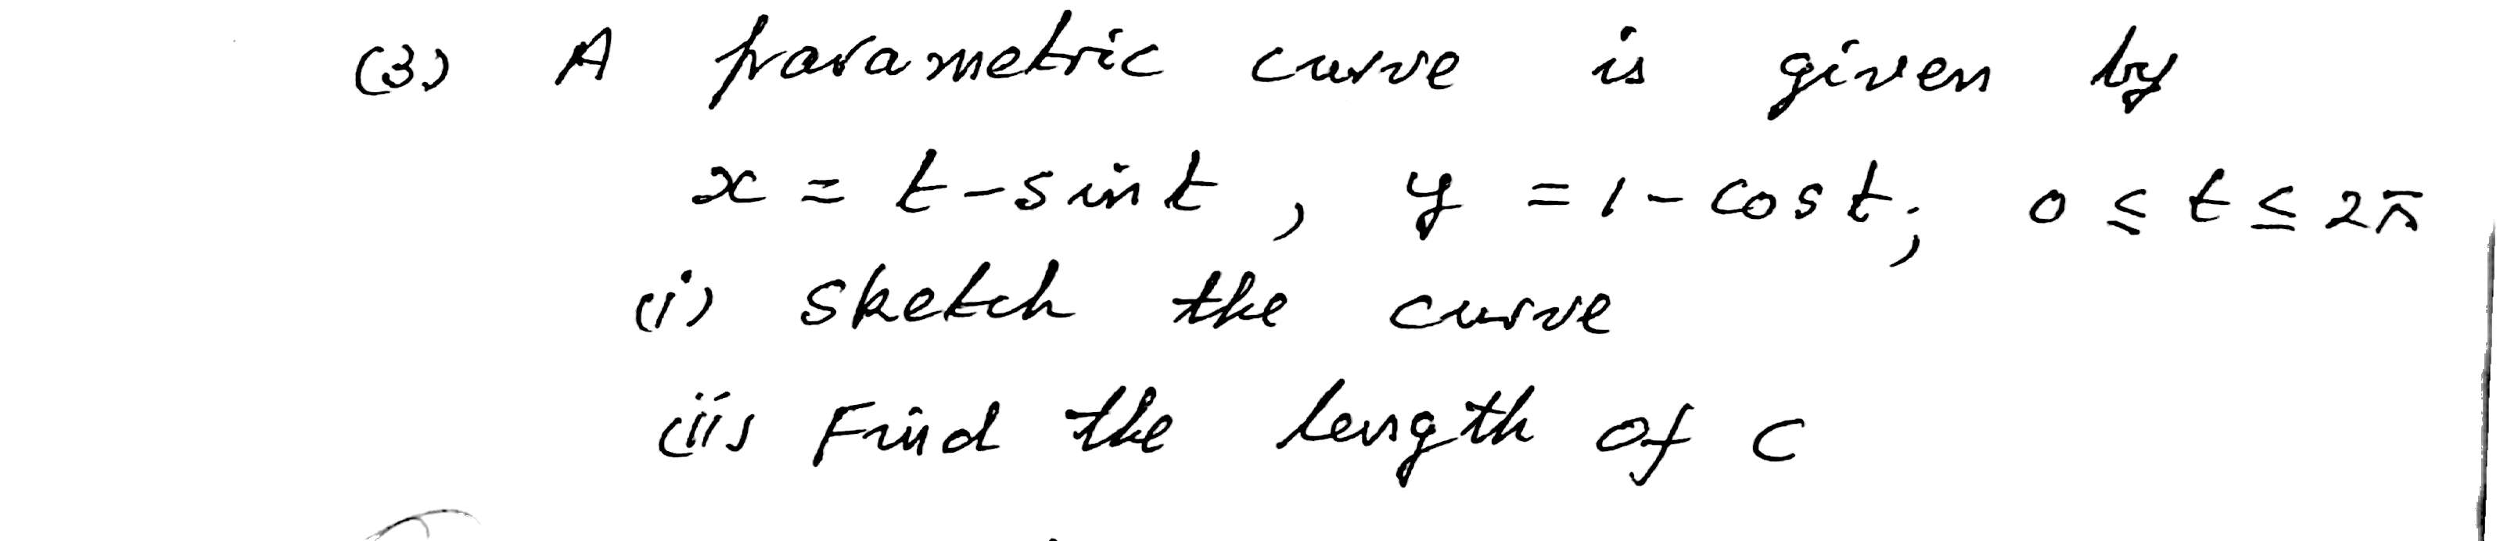 (3) A parametric curve is given by
x = t - sin t , y = 1 - cos t ; 0 ≤ t ≤ 2π
(i) Sketch the curve
(ii) Find the length of C